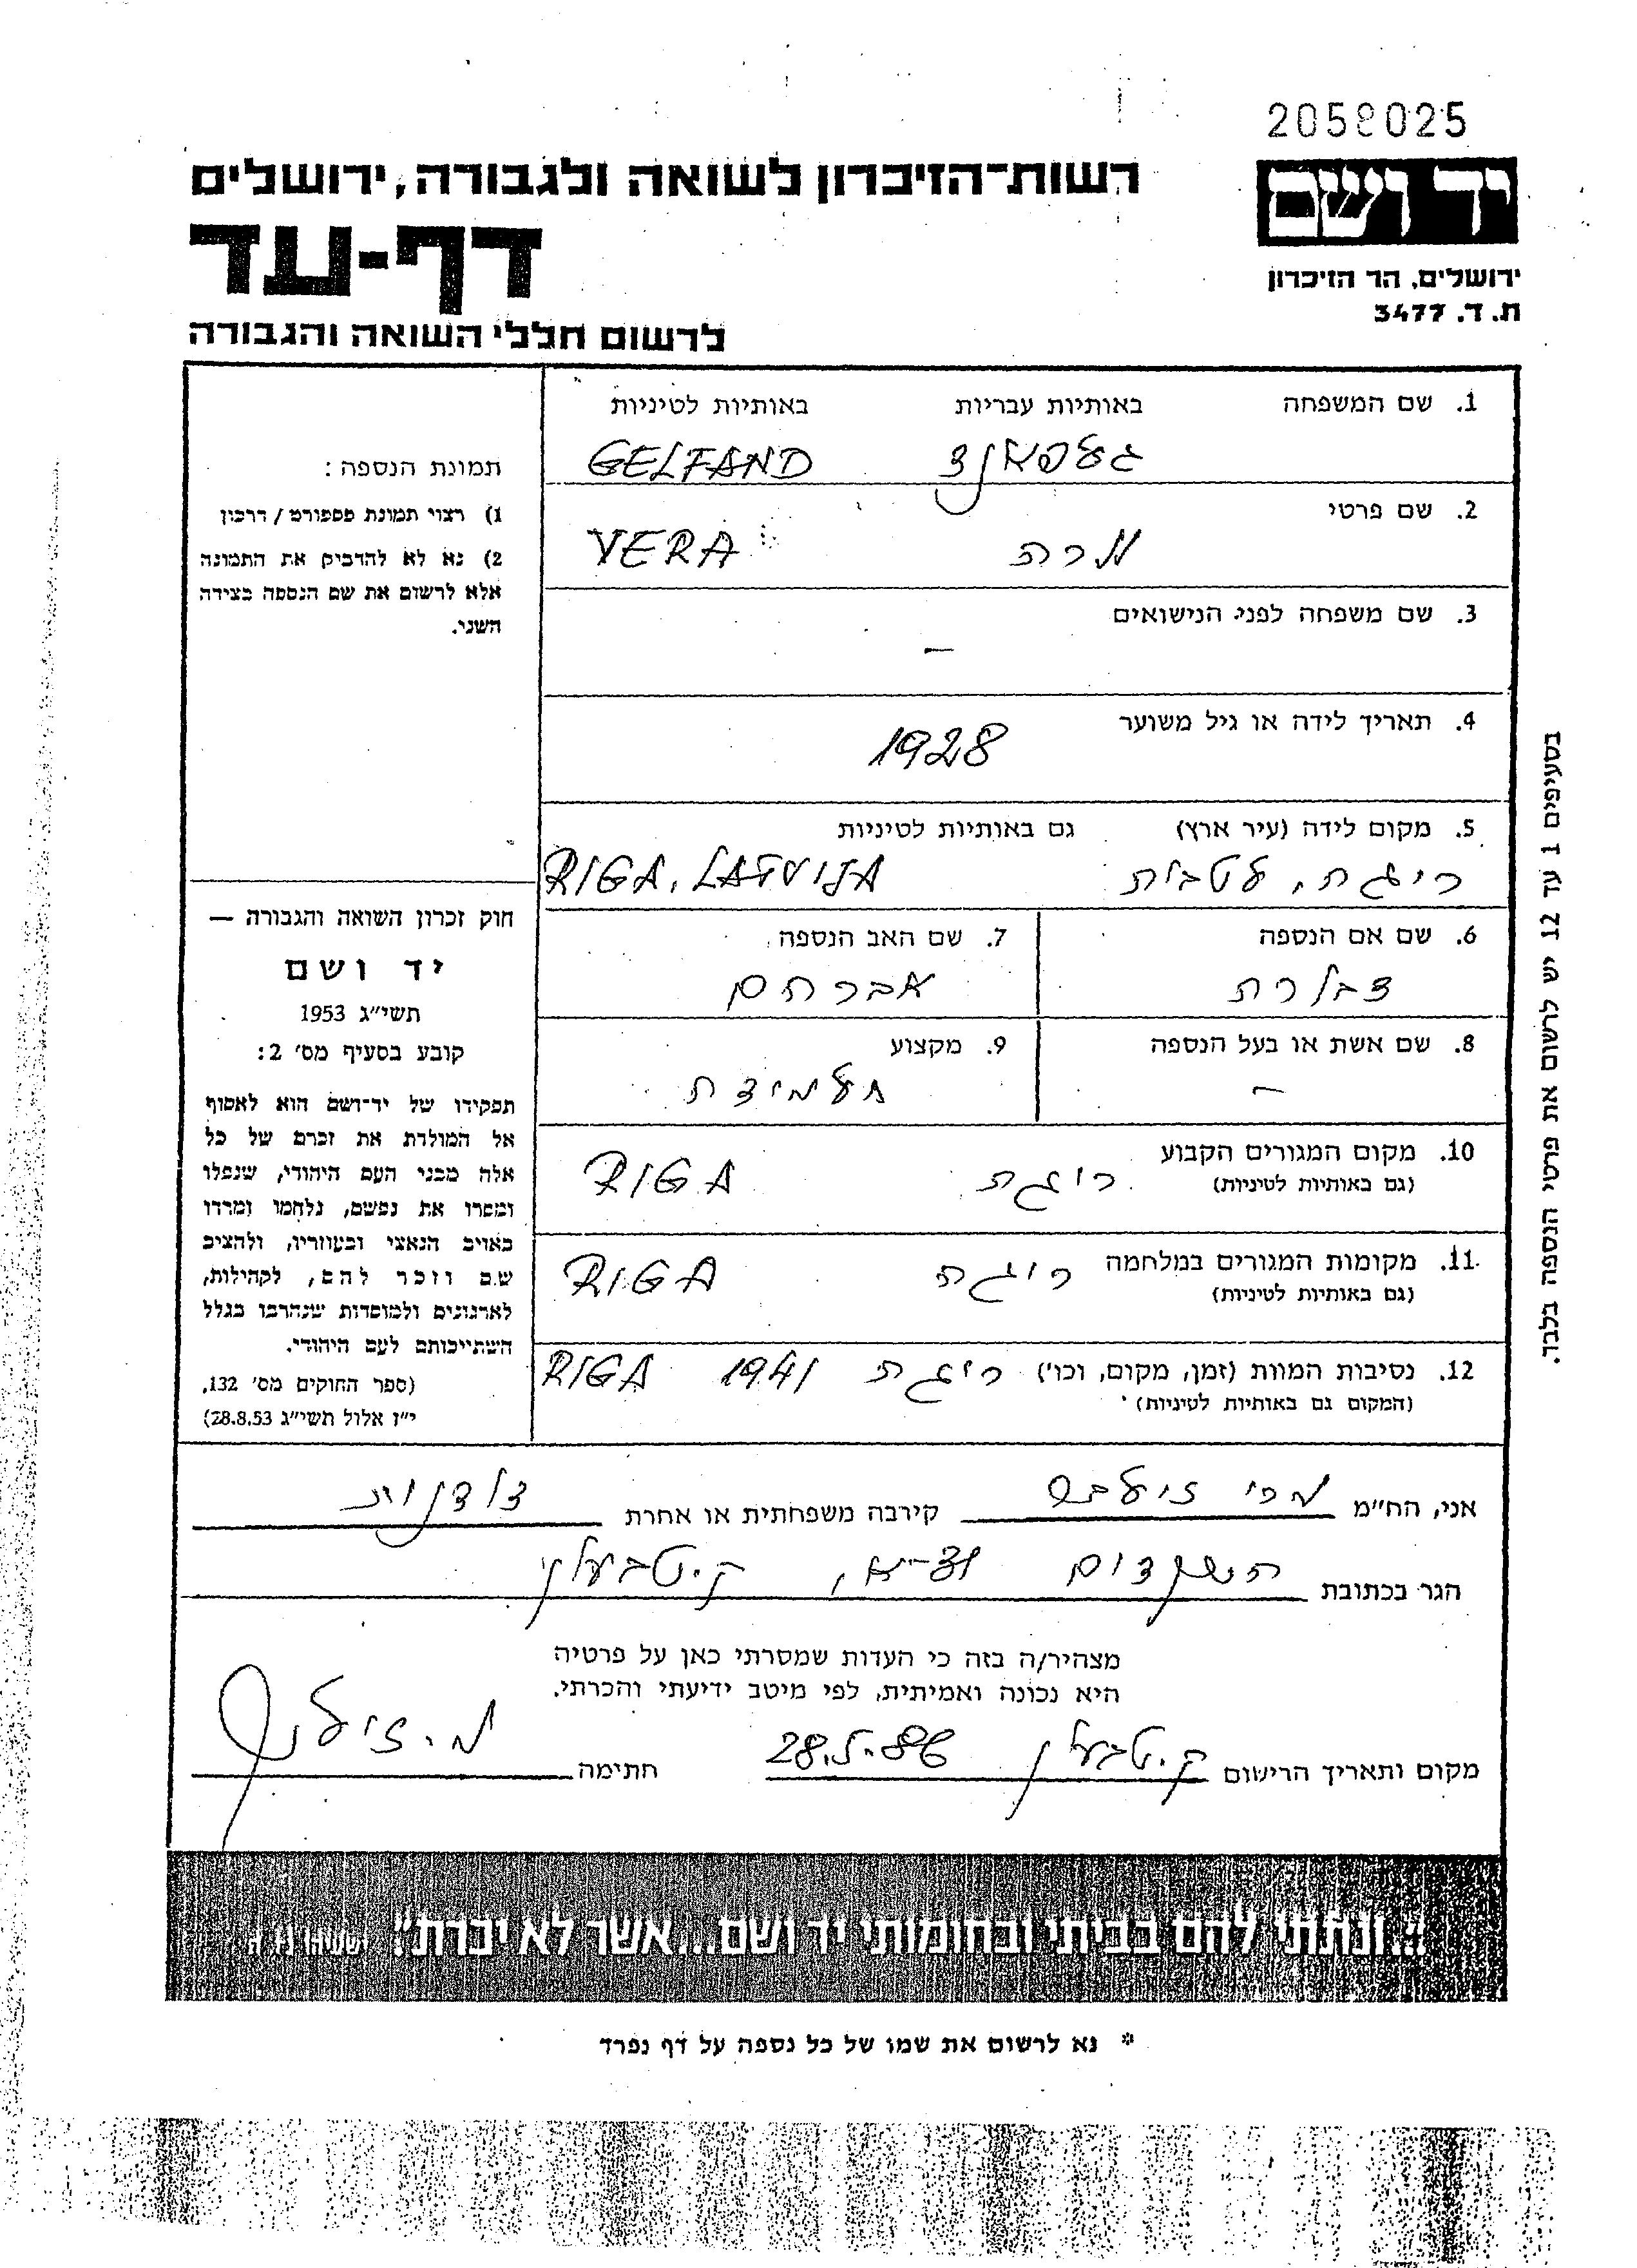 2058025
יד ושם
ירושלים, הר הזיכרון
ת. ד. 3477
רשות־הזיכרון לשואה ולגבורה, ירושלים
דף-עד
לרשום חללי השואה והגבורה
1. שם המשפחה באותיות עבריות באותיות לטיניות
געלפאנד GELFAND
2. שם פרטי
ורה VERA
3. שם משפחה לפני הנישואים
—
4. תאריך לידה או גיל משוער
1928
5. מקום לידה (עיר ארץ) גם באותיות לטיניות
ריגה, לטביה RIGA, LATVIJA
6. שם אם הנספה 7. שם האב הנספה
דבורה אברהם
8. שם אשת או בעל הנספה 9. מקצוע
— תלמידה
10. מקום המגורים הקבוע
(גם באותיות לטיניות)
ריגה RIGA
11. מקומות המגורים במלחמה
(גם באותיות לטיניות)
ריגה RIGA
12. נסיבות המוות (זמן, מקום, וכו') ריגה 1941 RIGA
(המקום גם באותיות לטיניות)
תמונת הנספה:
1) רצוי תמונת פספורט / דרכון
2) נא לא להדביק את התמונה
אלא לרשום את שם הנספה בצידה
השני.
חוק זכרון השואה והגבורה —
יד ושם
תשי״ג 1953
קובע בסעיף מס׳ 2:
תפקידו של יד־ושם הוא לאסוף
אל המולדת את זכרם של כל
אלה מבני העם היהודי, שנפלו
ומסרו את נפשם, נלחמו ומרדו
באויב הנאצי ובעוזריו, ולהציב
שם וזכר להם, לקהילות,
לארגונים ולמוסדות שנחרבו בגלל
השתייכותם לעם היהודי.
(ספר החוקים מס׳ 132,
י״ז אלול תשי״ג 28.8.53)
בסעיפים 1 עד 12 יש לרשום את פרטי הנספה בלבד.
אני, הח״מ קירבה משפחתית או אחרת דודנות
הגר בכתובת השקדים
מצהיר/ה בזה כי העדות שמסרתי כאן על פרטיה
היא נכונה ואמיתית, לפי מיטב ידיעתי והכרתי.
מקום ותאריך הרישום ק. טבעון 28.5.86 חתימה
"...ונתתי להם בביתי ובחומותי יד ושם...אשר לא יכרת"
* נא לרשום את שמו של כל נספה על דף נפרד